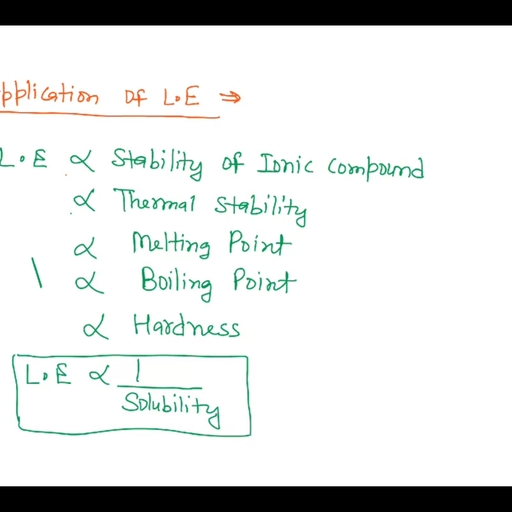 pplication of L.E ⇒
L.E ∝ Stability of Ionic Compound
∝ Thermal Stability
∝ Melting Point
∝ Boiling Point
∝ Hardness
L.E ∝ 1
Solubility